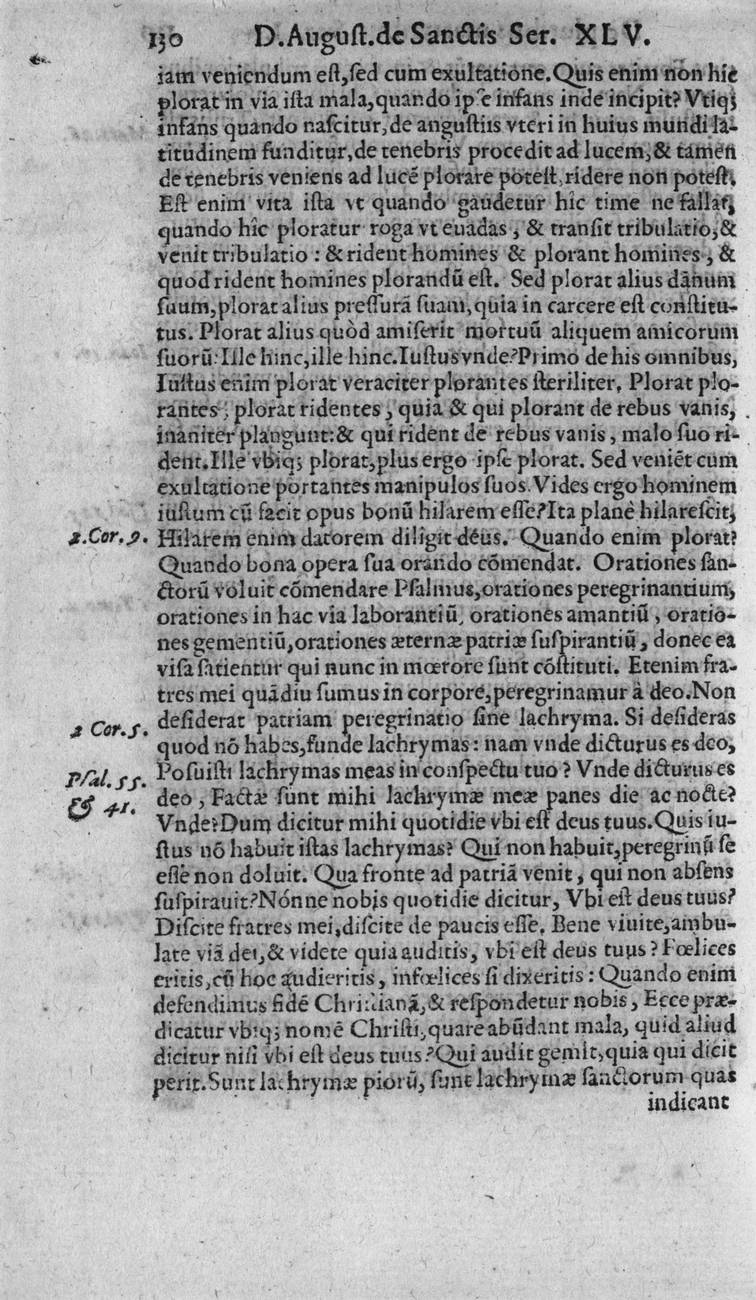 130 D. August. de Sanctis Ser. XLV.
iam veniendum est, sed cum exultatione. Quis enim non hic
plorat in via ista mala, quando ipse infans inde incipit? Vtiq;
infans quando nascitur, de angustiis vteri in huius mundi la-
titudinem funditur, de tenebris procedit ad lucem, & tamen
de tenebris veniens ad lucē plorare potest, ridere non potest.
Est enim vita ista vt quando gaudetur hîc time ne fallat,
quando hîc ploratur roga vt euadas, & transit tribulatio, &
venit tribulatio: & rident homines & plorant homines, &
quod rident homines plorandū est. Sed plorat alius dānum
suum, plorat alius pressurā suam, quia in carcere est constitu-
tus. Plorat alius quòd amiserit mortuū aliquem amicorum
suorū: Ille hinc, ille hinc. Iustus vnde? Primo de his omnibus,
Iustus enim plorat veraciter plorantes steriliter, Plorat plo-
rantes, plorat ridentes, quia & qui plorant de rebus vanis,
inaniter plangunt: & qui rident de rebus vanis, malo suo ri-
dent. Ille vbiq; plorat, plus ergo ipse plorat. Sed veniēt cum
exultatione portantes manipulos suos. Vides ergo hominem
iustum cū facit opus bonū hilarem esse? Ita planè hilarescit,
2. Cor. 9. Hilarem enim datorem diligit déus. Quando enim plorat?
Quando bona opera sua orando cōmendat. Orationes san-
ctorū voluit cōmendare Psalmus, orationes peregrinantium,
orationes in hac via laborantiū, orationes amantiū, oratio-
nes gementiū, orationes æternæ patriæ suspirantiū, donec ea
visa satientur qui nunc in mœrore sunt cōstituti. Etenim fra-
tres mei quādiu sumus in corpore, peregrinamur à deo. Non
2 Cor. 5. desiderat patriam peregrinatio sine lachryma. Si desideras
quod nō habes, funde lachrymas: nam vnde dicturus es deo,
Psal. 55. Posuisti lachrymas meas in conspectu tuo? Vnde dicturus es
& 41. deo, Factæ sunt mihi lachrymæ meæ panes die ac nocte?
Vnde? Dum dicitur mihi quotidie vbi est deus tuus. Quis iu-
stus nō habuit istas lachrymas? Qui non habuit, peregrinū se
esse non doluit. Qua fronte ad patriā venit, qui non absens
suspirauit? Nónne nobis quotidie dicitur, Vbi est deus tuus?
Discite fratres mei, discite de paucis esse. Bene viuite, ambu-
late viā dei, & videte quia auditis, vbi est deus tuus? Fœlices
eritis, cū hoc audieritis, infœlices si dixeritis: Quando enim
defendimus fidē Christianā, & respondetur nobis, Ecce præ-
dicatur vbiq; nomē Christi, quare abūdant mala, quid aliud
dicitur nisi vbi est deus tuus? Qui audit gemit, quia qui dicit
perit. Sunt lachrymæ piorū, sunt lachrymæ sanctorum quas
indicant